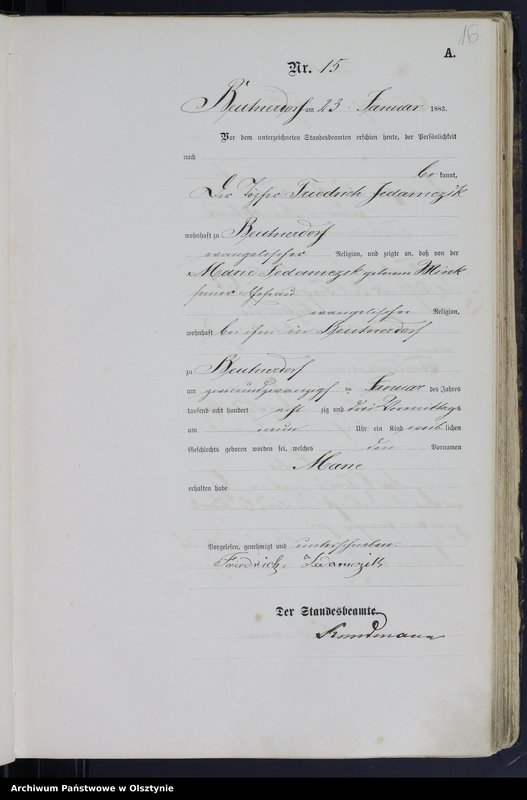 16
A.
Nr. 15
Beutnerdorf am 23 Januar 1883.
Vor dem unterzeichneten Standesbeamten erschien heute, der Persönlichkeit
nach
be kannt,
Der Töpfer Friedrich Jedamczik
wohnhaft zu Beutnerdorf
evangelischer Religion, und zeigte an, daß von der
Marie Jedamczik geborene Mink
seiner Ehefrau
evangelischer Religion,
wohnhaft bei ihm in Beutnerdorf
zu Beutnerdorf
am zweiundzwanzigsten Januar des Jahres
tausend acht hundert acht zig und drei Vormittags
um neun Uhr ein Kind weib lichen
Geschlechts geboren worden sei, welches den Vornamen
Marie
erhalten habe
Vorgelesen, genehmigt und unterschrieben.
Friedrich Jedamczik
Der Standesbeamte.
Archiwum Państwowe w Olsztynie